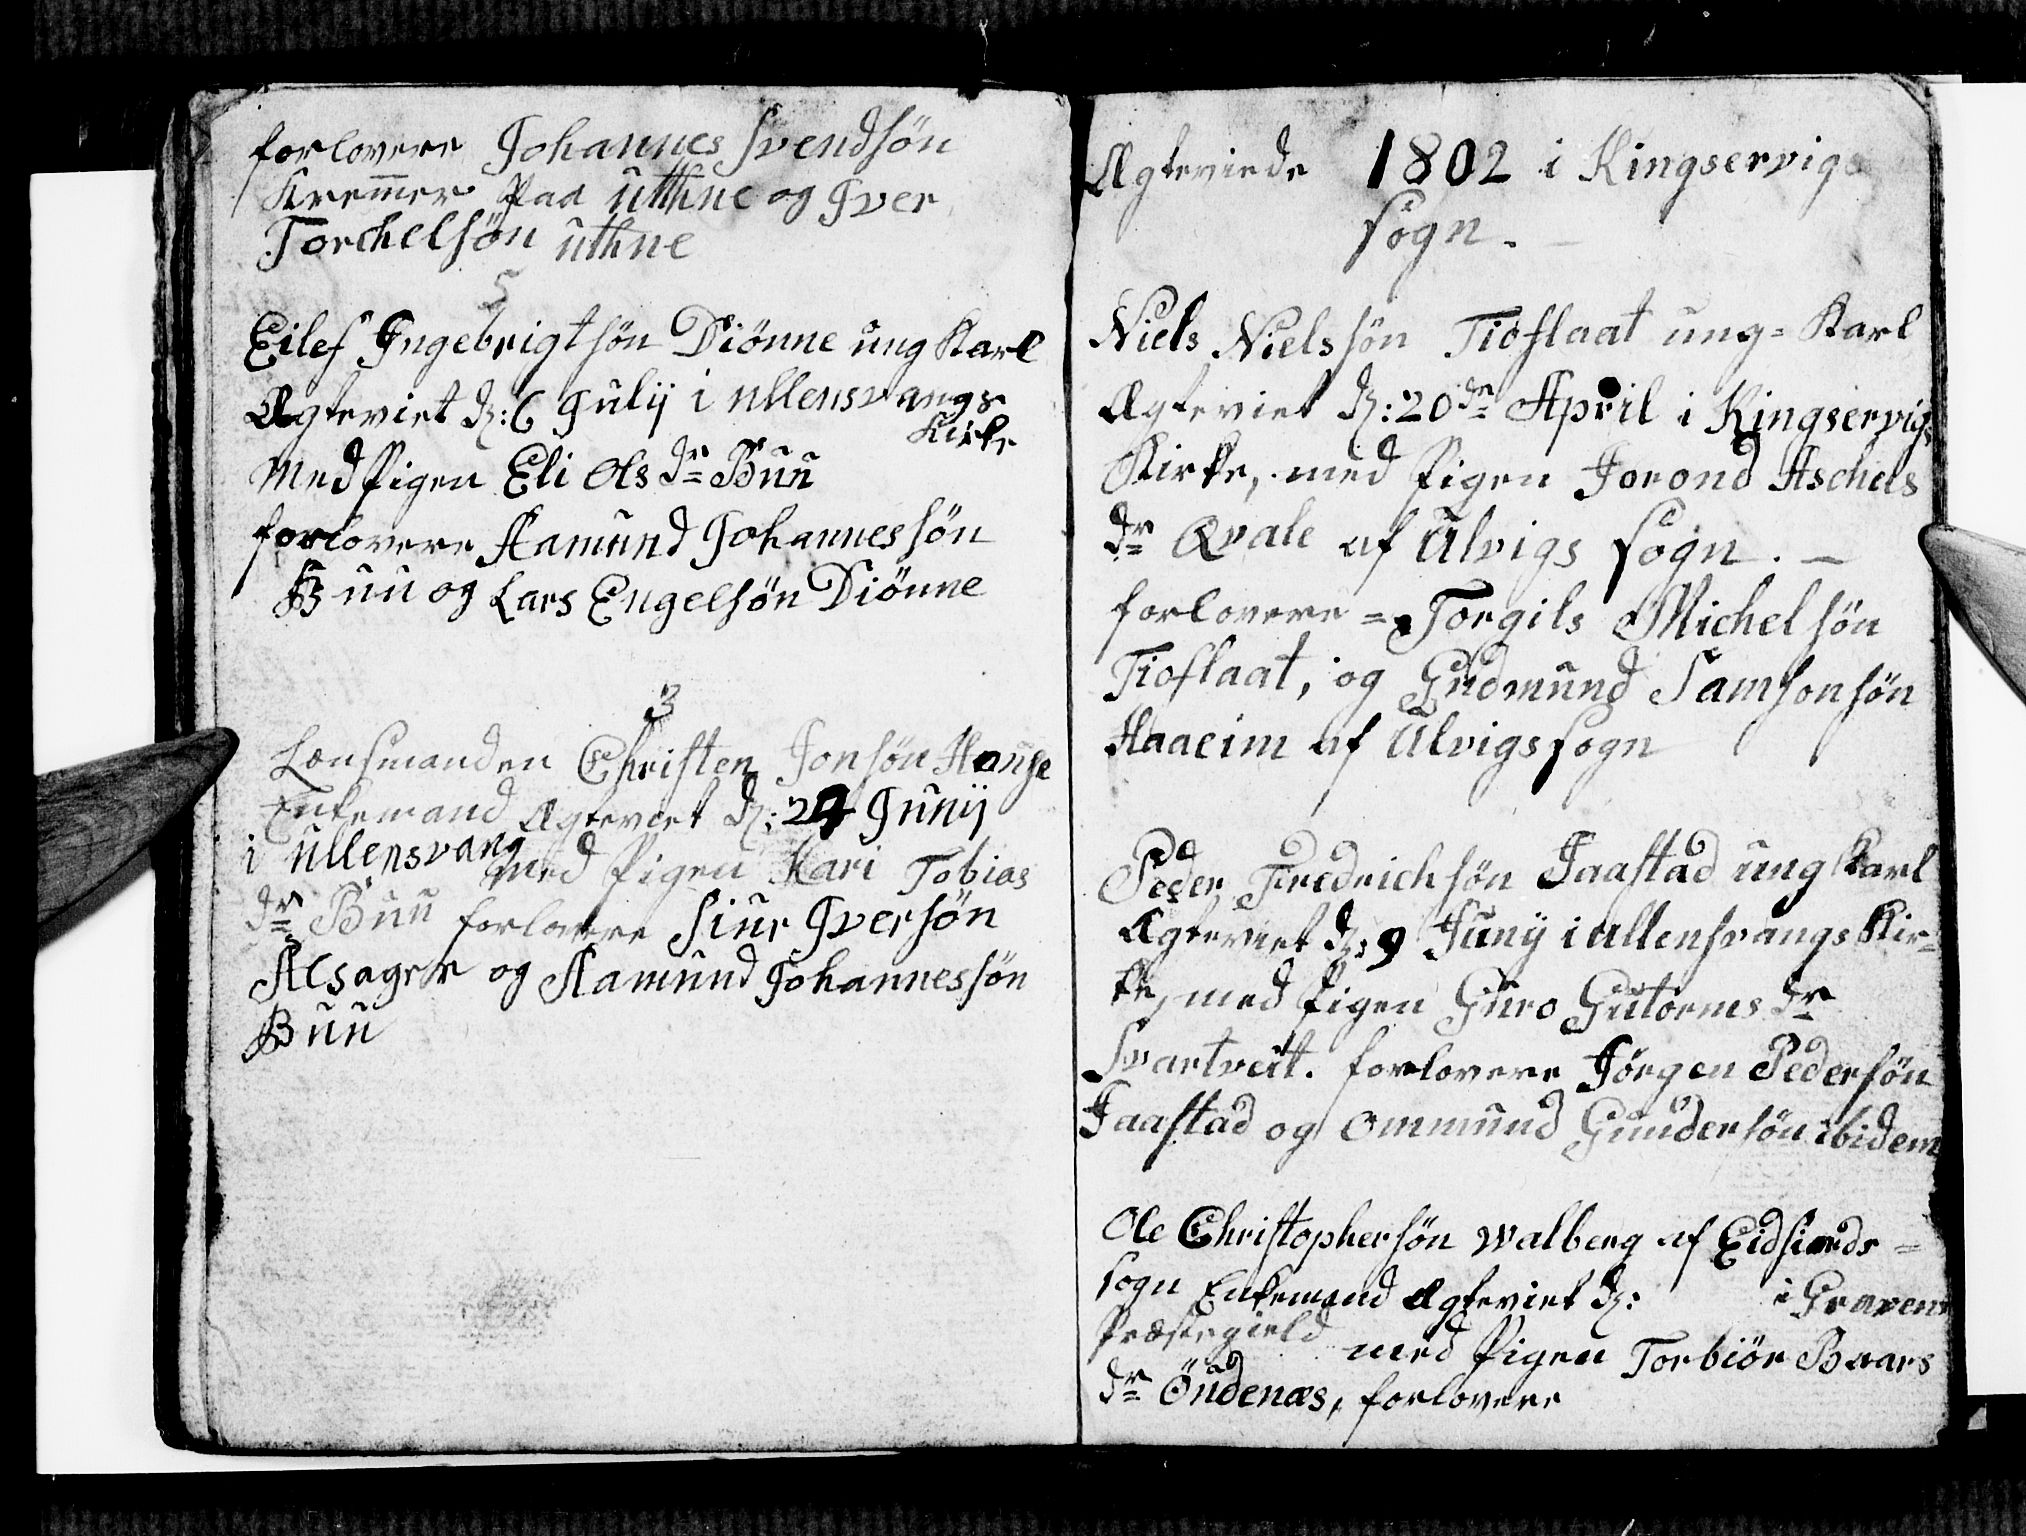 forlovere Johannes Svendsøn
Kremmer paa utthne og Iver
Torchelsøn uthne
5
Eilef Ingebrigtsøn Diønne ung Karl
Ægteviet d: 6 Julij i Ullensvangs
Kirke
med Pigen Eli Olsdr Buu
forlovere Aamund Johannessøn
Buu og Lars Engelsøn Diønne
3
Lensmanden Christen Jonsøn Hauge
Enkemand Ægteviet d: 24 Junij
i Ullensvang
med Pigen Kari Tobias
dr Buu forlovere Siur Iversøn
Alsager og Aamund Johannessøn
Buu
Ægteviede 1802 i Kingservigs
Sogn.
Niels Nielssøn Tioflaat ung-Karl
Ægteviet d: 20de April i Kingservigs
Kirke, med Pigen Jorond Aschels
dr Qvale af Ulvigs Sogn. —
forlovere = Torgils Michelsøn
Tioflaat, og Gudmund Samsonsøn
Haaeim af Ulvigs sogn
Peder Fredrichsøn Jaastad ung Karl
Ægteviet d: 9 Junij i Ullensvangs Kir-
ke, med Pigen Guro Gutormsdr
Svartveit. forlovere Jörgen Pedersøn
Jaastad og Ommund Gundersøn ibidem
Ole Christophersøn Walberg af Eidfiords =
sogn Enkemand Ægteviet d: i Gravens
Præstegield
med Pigen Torbiør Baars
dr Öudenæs, forlovere